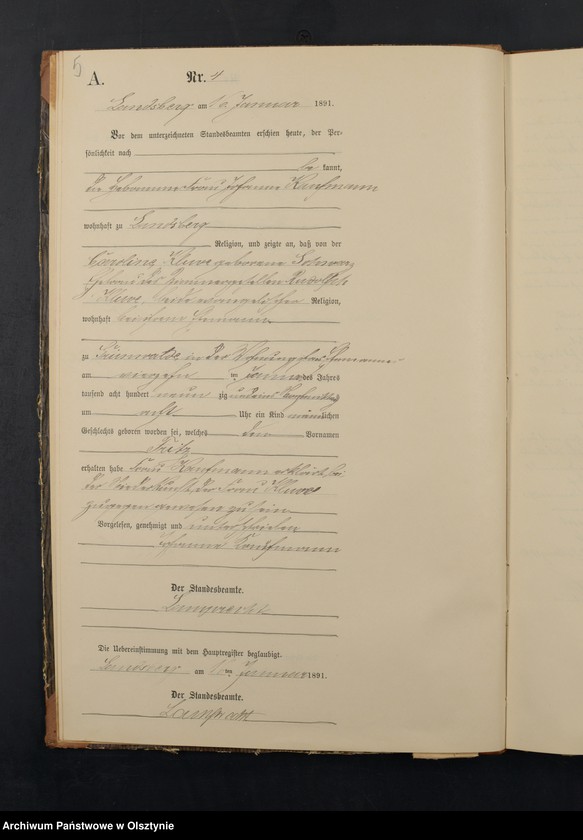 5
A.
Nr. 4
Landsberg am 16 Januar 1891.
Vor dem unterzeichneten Standesbeamten erschien heute, der Per-
sönlichkeit nach
be kannt,
die Hebamme Frau Johanna Kaufmann
wohnhaft zu Landsberg
Religion, und zeigte an, daß von der
Karoline Kluwe geborene
Ehefrau des Zimmergesellen Rudolph
Kluwe, beide evangelischer Religion,
wohnhaft bei
zu Grünwalde in der Wohnung
am vierzehn ten Januar des Jahres
tausend acht hundert neun zig und eins
am acht Uhr ein Kind männlichen
Geschlechts geboren worden sei, welches den Vornamen
Fritz
erhalten habe. Frau Kaufmann erklärt, bei
der Niederkunft der Frau Kluwe
zugegen gewesen zu sein
Vorgelesen, genehmigt und unterschrieben
Johanna Kaufmann
Der Standesbeamte.
Die Uebereinstimmung mit dem Hauptregister beglaubigt.
Landsberg am 16 ten Januar 1891.
Der Standesbeamte.
Archiwum Państwowe w Olsztynie